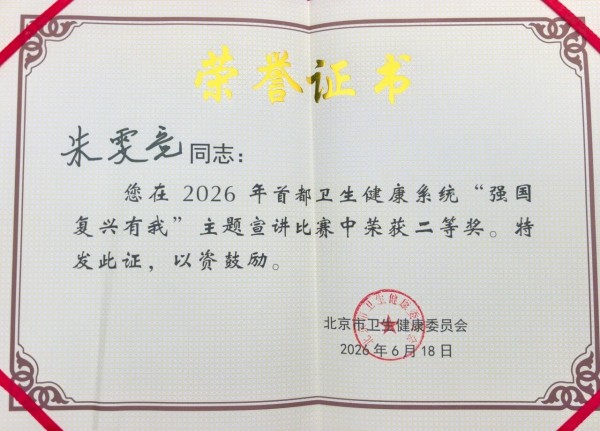 荣誉证书
朱雯亮同志：
您在 2026 年首都卫生健康系统“强国
复兴有我”主题宣讲比赛中荣获二等奖。特
发此证，以资鼓励。
北京市卫生健康委员会
2026 年 6 月 18 日
北京市卫生健康委员会